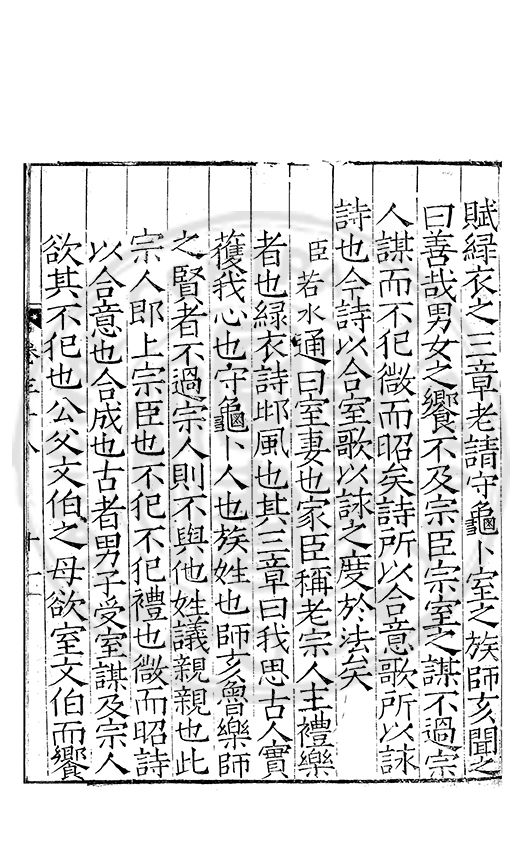 賦緑衣之三章老請守龜卜室之族師亥聞之
曰善哉男女之饗不及宗臣宗室之謀不過宗
人謀而不犯微而昭矣詩所以合意歌所以詠
詩也今詩以合室歌以詠之度於法矣
臣若水通曰室妻也家臣稱老宗人主禮樂
者也緑衣詩邶風也其三章曰我思古人實
獲我心也守龜卜人也族姓也師亥魯樂師
之賢者不過宗人則不與他姓議親親也此
宗人即上宗臣也不犯不犯禮也微而昭詩
以合意也合成也古者男子受室謀及宗人
欲其不犯也公父文伯之母欲室文伯而饗
卷三十八
十一